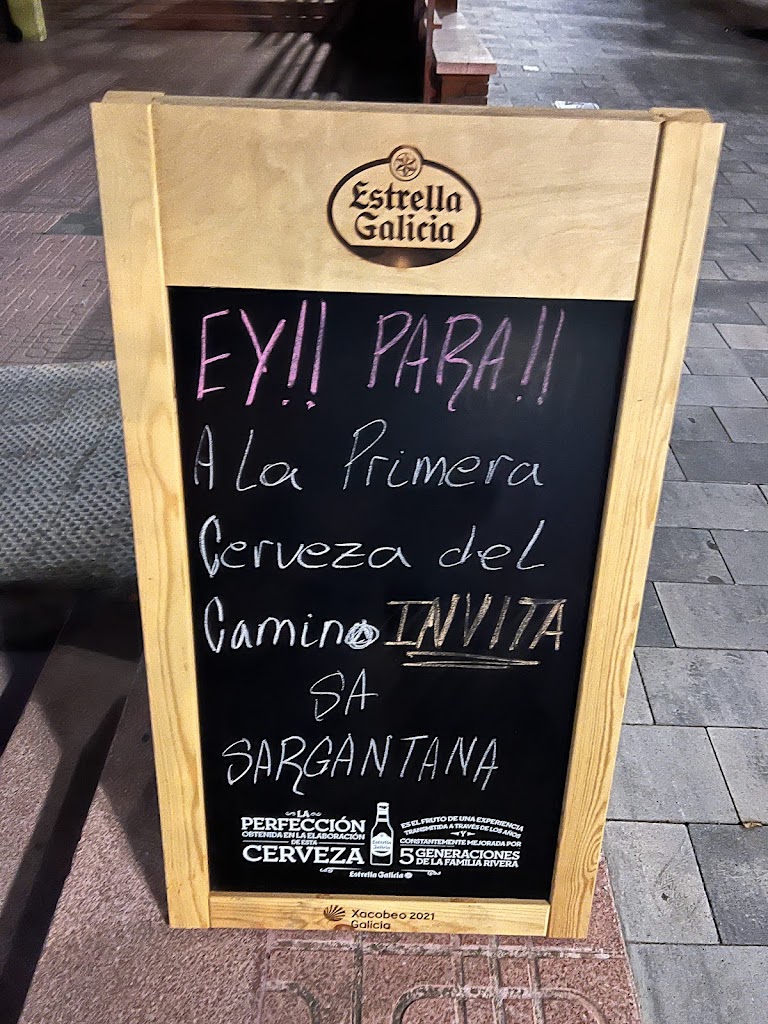 Estrella
Galicia
EY!! PARA!!
A La Primera
Cerveza del
Camino INVITA
SA
SARGANTANA
LA
PERFECCIÓN
OBTENIDA EN LA ELABORACIÓN
DE ESTA
CERVEZA
ES EL FRUTO DE UNA EXPERIENCIA
TRANSMITIDA A TRAVÉS DE LOS AÑOS
Y
CONSTANTEMENTE MEJORADA POR
5 GENERACIONES
DE LA FAMILIA RIVERA
Estrella Galicia
Estrella Galicia
Xacobeo 2021
Galicia